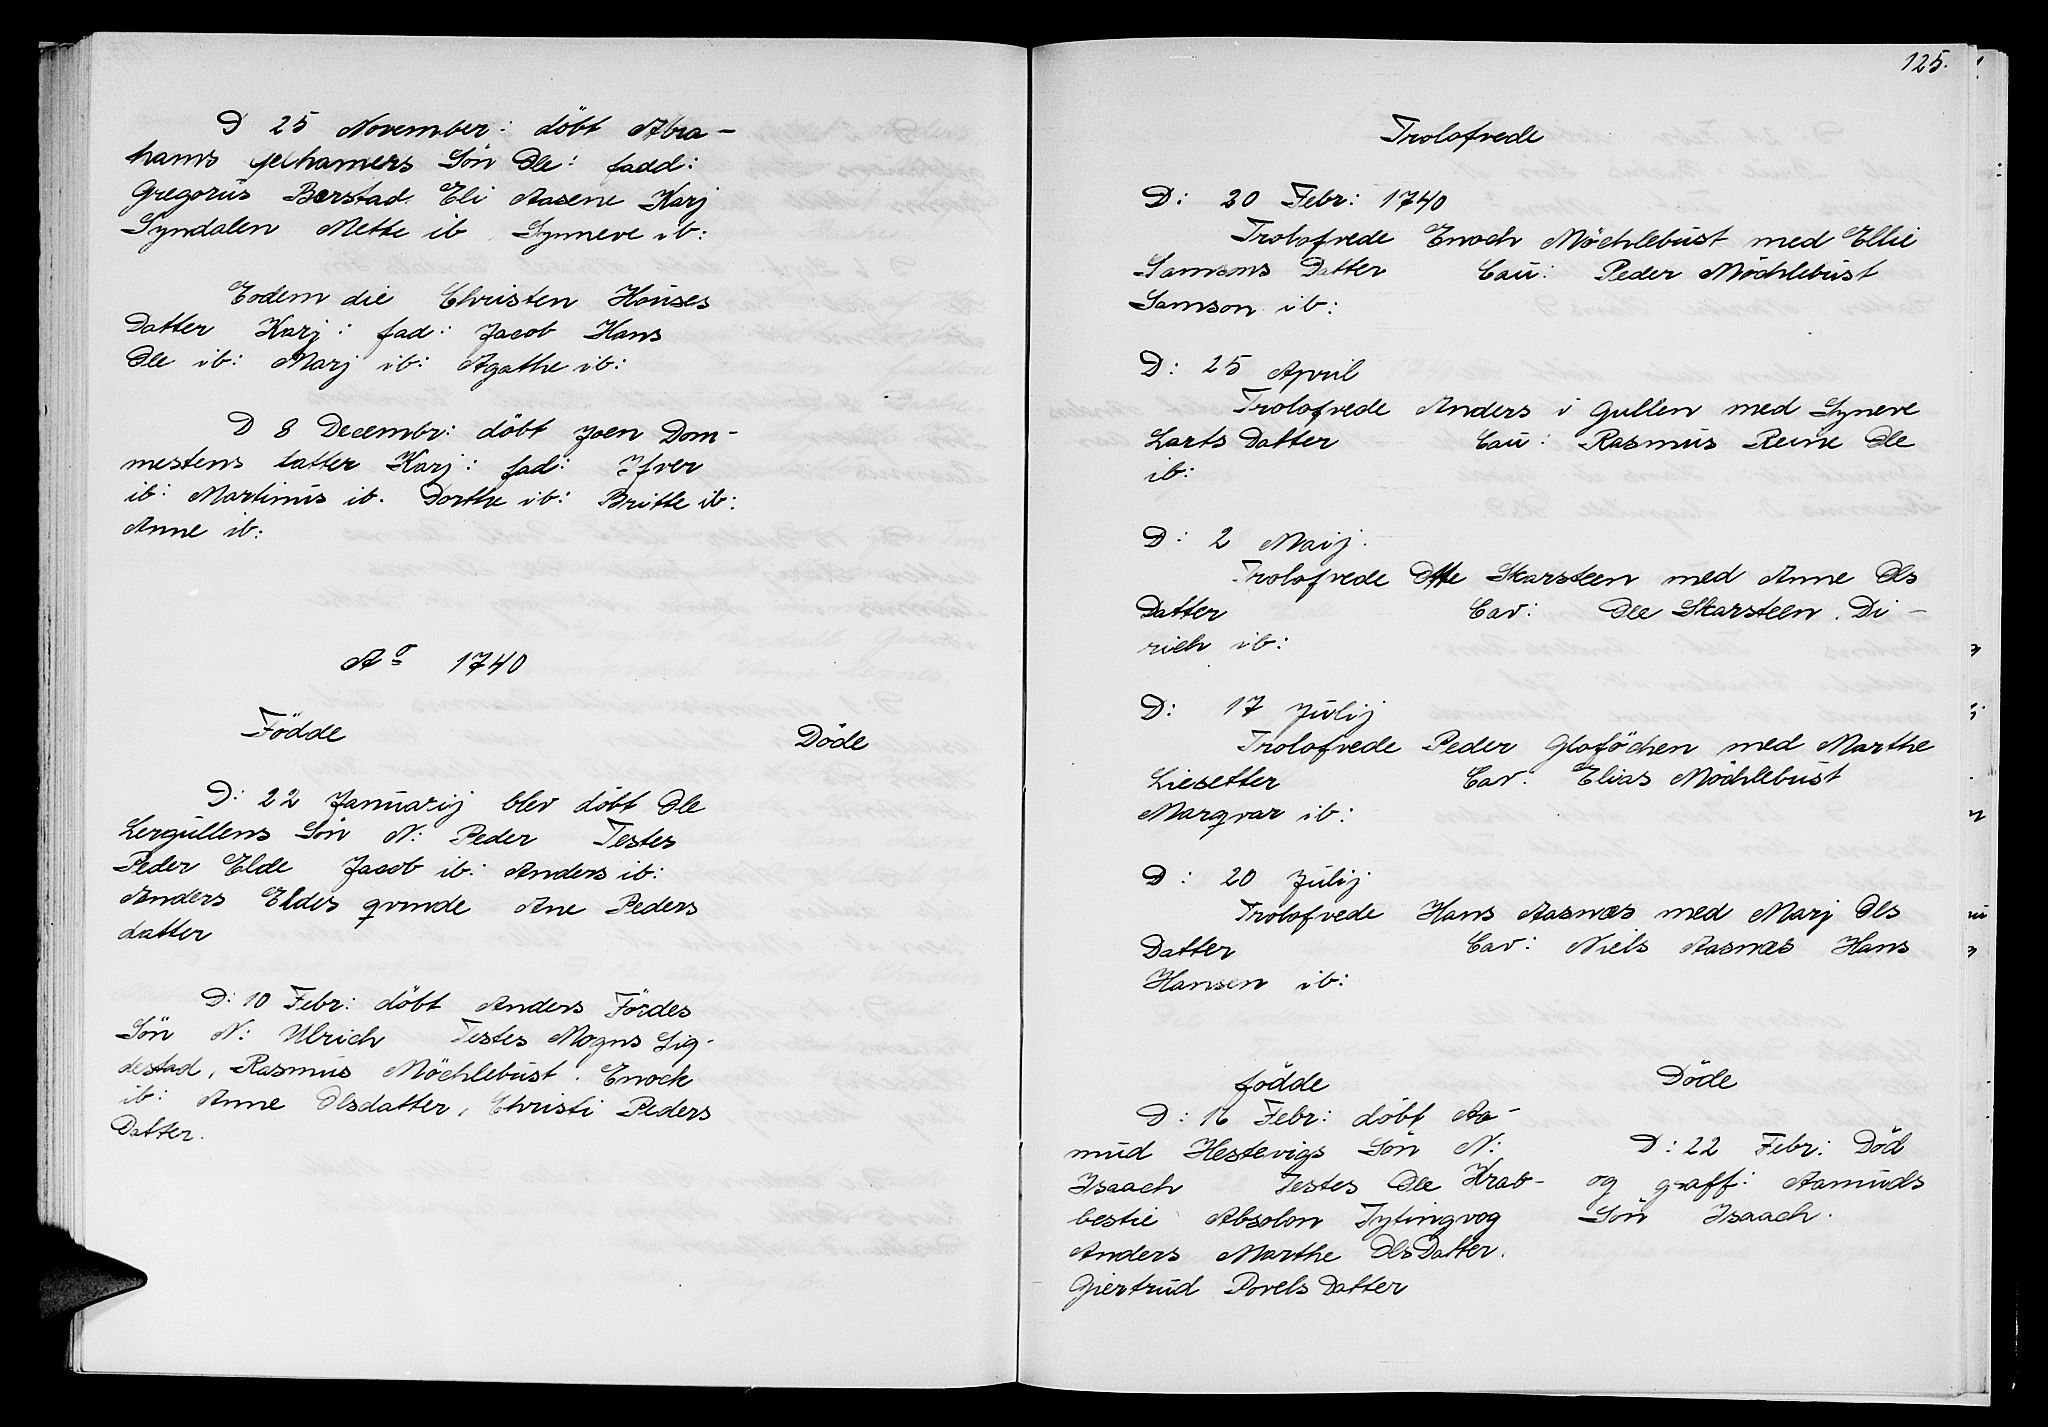 D 25 November: döbt Abra-
hams Jelhamers Sön Ole: fadd:
Gregorius Barstad Eli Aasene Karj
Syndalen Mette ib Synneve ib:
Eodem die Christen Houses
Datter Karj: fad: Jacob Hans
Ole ib: Marj ib: Agathe ib:
D 8 Decembr: döbt Joen Dom-
mestens tatter Karj: fad: Ifver
ib: Martinus ib. Dorthe ib: Britte ib:
Anne ib:
Aº 1740
Födde
Döde
D: 22 Januarij blev döbt Ole
Lergullens Sön N: Peder Testes
Peder Elde Jacob ib: Anders ib:
Anders Eldes qvinde Ane Peders
datter
D: 10 Febr: döbt Anders Fördes
Sön N: Ulrich Testes Mogns Sig-
destad, Rasmus Möchlebust. Enock
ib: Anne Olsdatter, Christi Peders
Datter.
125.
Trolofvede
D: 20 Febr: 1740
Trolofvede Enoch Möchlebust med Ellie
Samsons Datter Cau: Peder Möchlebust
Samson ib:
D: 25 April
Trolofvede Anders i Gullen med Syneve
Larts Datter Cau: Rasmus Reine Ole
ib:
D: 2 Maij.
Trolofvede Otte Skarsteen med Anne Ols
Datter Cav: Ole Skarsteen. Di-
rich ib:
D: 17 Julij
Trolofvede Peder Gloföchen med Marthe
Liesetter Cav: Elias Möchlebust
Marqvar ib:
D: 20 Julij
Trolofvede Hans Aasnæs med Marj Ols
Datter Cav: Niels Aasnæs Hans
Hansen ib:
födde
D: 16 Febr: döbt Aa-
mud Hestevigs Sön N:
Isaach Testes Ole Krab-
bestie Absolon Tytingvog
Anders Marthe OlsDatter.
Giertrud Povels Datter
Döde
D: 22 Febr: Död
og graff: Aamuds
Sön Isaach.